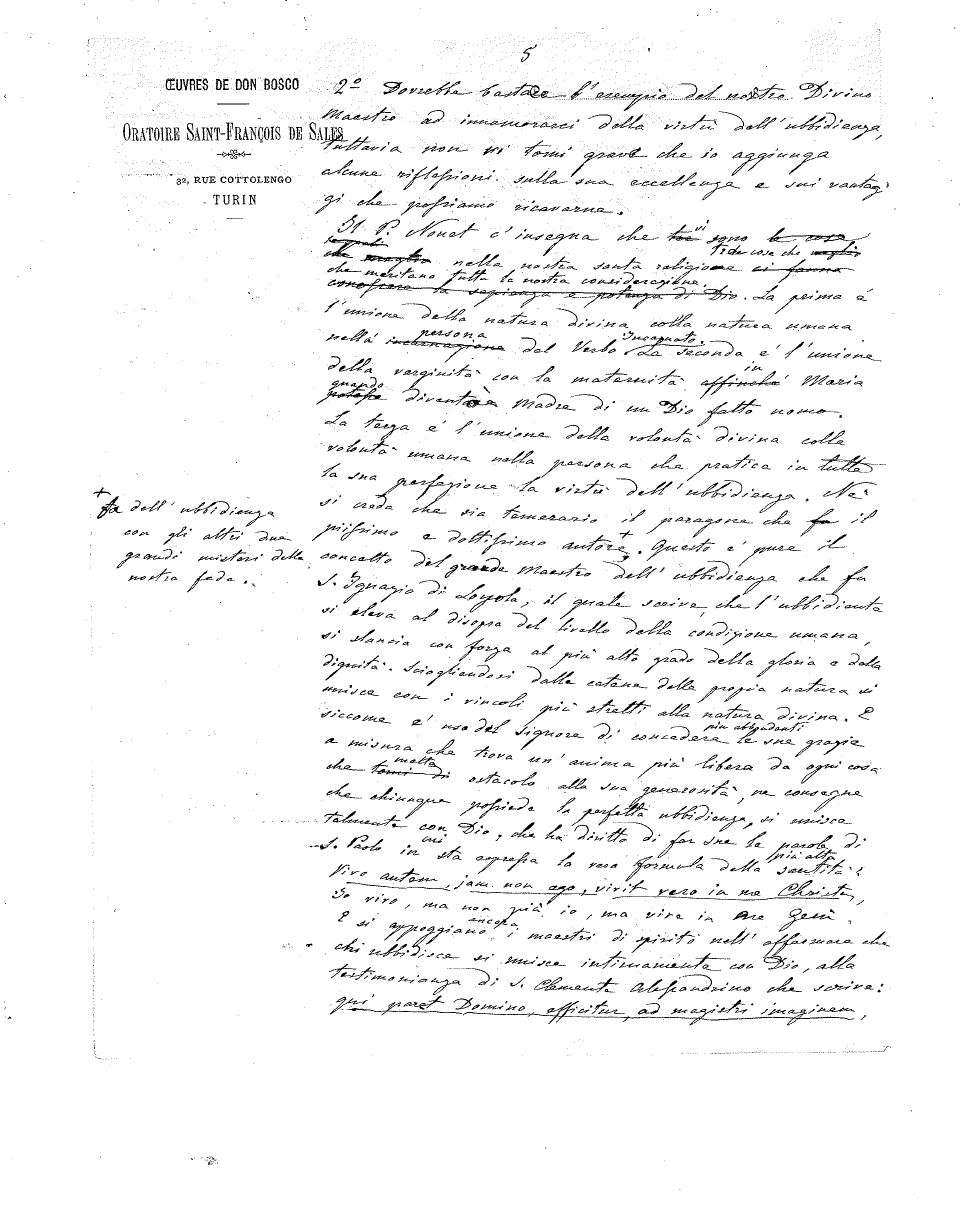 5
ŒUVRES DE DON BOSCO
ORATOIRE SAINT-FRANÇOIS DE SALES
32, RUE COTTOLENGO
TURIN
2º Dovrebbe bastare l'esempio del nostro Divino
Maestro ad innamorarci della virtù dell'ubbidienza,
tuttavia non vi torni grave che io aggiunga
alcune riflessioni sulla sua eccellenza e sui vantag
gi che possiamo ricavarne.
Il P. Nouet c'insegna che tre vi sono le cose
tre cose che meglio
nella nostra santa religione ci fanno
che meritano tutta la nostra considerazione.
conoscere la sapienza e potenza di Dio. La prima è
l'unione della natura divina colla natura umana
nella incarnazione persona del Verbo Incarnato. La seconda è l'unione
della verginità con la maternità affinchè in Maria
potesse quando diventò Madre di un Dio fatto uomo.
La terza è l'unione della volontà divina colla
volontà umana nella persona che pratica in tutta
la sua perfezione la virtù dell'ubbidienza. Nè
si creda che sia temerario il paragone che fa il
piissimo e dottissimo autore +. Questo è pure il
concetto del grande Maestro dell'ubbidienza che fu
S. Ignazio di Loyola, il quale scrive, che l'ubbidiente
si eleva al disopra del livello della condizione umana,
si slancia con forza al più alto grado della gloria e della
dignità. Sciogliendosi dalle catene della propria natura si
unisce con i vincoli più stretti alla natura divina. E
siccome è uso del Signore di concedere più abbondanti le sue grazie
a misura che trova un'anima più libera da ogni cosa
che torni di metta ostacolo alla sua generosità, ne consegue
che chiunque possiede la perfetta ubbidienza, si unisce
talmente con Dio, che ha diritto di far sue le parole di
S. Paolo in cui sta espressa la vera formula della più alta santità:
Vivo autem, jam non ego, vivit vero in me Christus,
Io vivo, ma non già io, ma vive in me Gesù.
E si appoggiano ancora i maestri di spirito nell'affermare che
chi ubbidisce si unisce intimamente con Dio, alla
testimonianza di S. Clemente Alessandrino che scrive:
qui paret Domino, efficitur ad magistri imaginem,
+
fa dell'ubbidienza
con gli altri due
grandi misteri della
nostra fede.